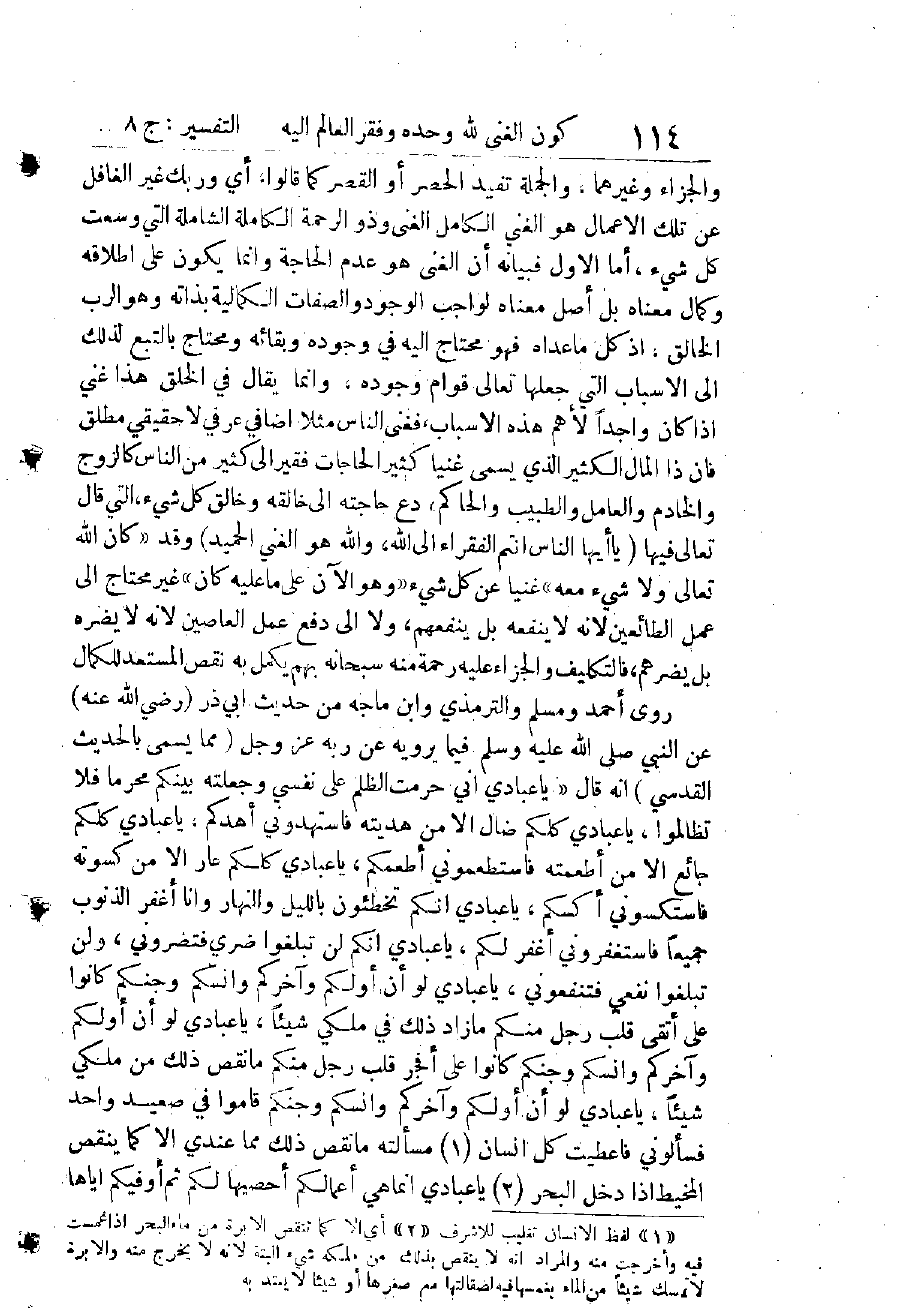 ١١٤ كون الغنى لله وحده وفقر العالم اليه التفسير : ج ٨
والجزاء وغيرهما ، والجملة تفيد الحصر أو القصر كما قالوا، أي وربك غير الغافل
عن تلك الاعمال هو الغني الكامل الغنى وذو الرحمة الكاملة الشاملة التي وسعت
كل شيء ، أما الاول فبيانه أن الغنى هو عدم الحاجة وانما يكون على اطلاقه
وكمال معناه بل أصل معناه لواجب الوجود والصفات الكمالية بذاته وهو الرب
الخالق ، اذ كل ماعداه فهو محتاج اليه في وجوده وبقائه ومحتاج بالتبع لذلك
الى الاسباب التي جعلها تعالى قوام وجوده ، وانما يقال في الخلق هذا غني
اذا كان واجداً لأهم هذه الاسباب، فغنى الناس مثلا اضافي عرفي لا حقيقي مطلق
فان ذا المال الكثير الذي يسمى غنيا كثير الحاجات فقير الى كثير من الناس كالزوج
والخادم والعامل والطبيب والحاكم، دع حاجته الى خالقه وخالق كل شيء، التي قال
تعالى فيها ( ياأيها الناس انتم الفقراء الى الله، والله هو الغني الحميد) وقد « كان الله
تعالى ولا شيء معه» غنيا عن كل شيء «وهو الآن على ماعليه كان» غير محتاج الى
عمل الطائعين لانه لاينفعه بل ينفعهم، ولا الى دفع عمل العاصين لانه لا يضره
بل يضرهم، فالتكليف والجزاء عليه رحمة منه سبحانه بهم يكمل به نقص المستعد للكمال
روى أحمد ومسلم والترمذي وابن ماجه من حديث ابي ذر (رضي الله عنه)
عن النبي صلى الله عليه وسلم فيما يرويه عن ربه عز وجل ( مما يسمى بالحديث
القدسي ) انه قال « ياعبادي اني حرمت الظلم على نفسي وجعلته بينكم محرما فلا
تظالموا ، ياعبادي كلكم ضال الا من هديته فاستهدوني أهدكم ، ياعبادي كلكم
جائع الا من أطعمته فاستطعموني أطعمكم ، ياعبادي كلكم عار الا من كسوته
فاستكسوني أكسكم ، ياعبادي انكم تخطئون بالليل والنهار وانا أغفر الذنوب
جميعاً فاستغفروني أغفر لكم ، ياعبادي انكم لن تبلغوا ضري فتضروني ، ولن
تبلغوا نفعي فتنفعوني ، ياعبادي لو أن أولكم وآخركم وانسكم وجنكم كانوا
على أتقى قلب رجل منكم مازاد ذلك في ملكي شيئاً ، ياعبادي لو أن أولكم
وآخركم وانسكم وجنكم كانوا على أفجر قلب رجل منكم مانقص ذلك من ملكي
شيئاً ، ياعبادي لو أن أولكم وآخركم وانسكم وجنكم قاموا في صعيد واحد
فسألوني فاعطيت كل انسان (١) مسألته مانقص ذلك مما عندي الا كما ينقص
المخيط اذا دخل البحر (٢) ياعبادي انماهي أعمالكم أحصيها لكم ثم أوفيكم اياها
«١» لفظ الانسان تغليب للاشرف «٢» أي الا كما تنقص الابرة من ماء البحر اذا غمست
فيه وأخرجت منه والمراد انه لا ينقص بذلك من ملكه شيء البتة لانه لا يخرج منه والابرة
لاتمسك شيئاً من الماء بغمسها فيه لصقالتها مع صغرها أو شيئا لا يعتد به